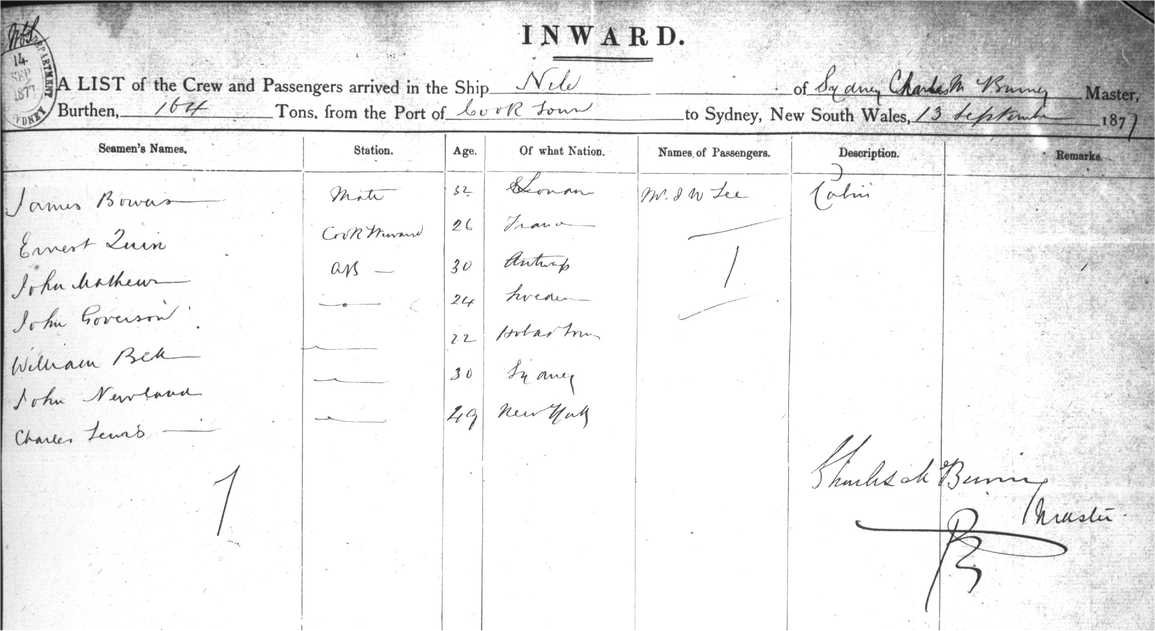 INWARD.
14
SEP
1877
A LIST of the Crew and Passengers arrived in the Ship Nile of Sydney Charles M Burney Master,
Burthen, 164 Tons, from the Port of Cook Town to Sydney, New South Wales, 13 September 1877
Seamen's Names. Station. Age. Of what Nation. Names of Passengers. Description. Remarks.
James Bowers Mate 32 Mr. J W Lee Cabin
Ernest Quin Cook 26
John Mathews AB 30 Antwp
John Goverson 24 Sweden
William Bell 22 Hobart Town
John Newland 30 Sydney
Charles Lewis 49 New York
1
7
Charles M Burney
Master